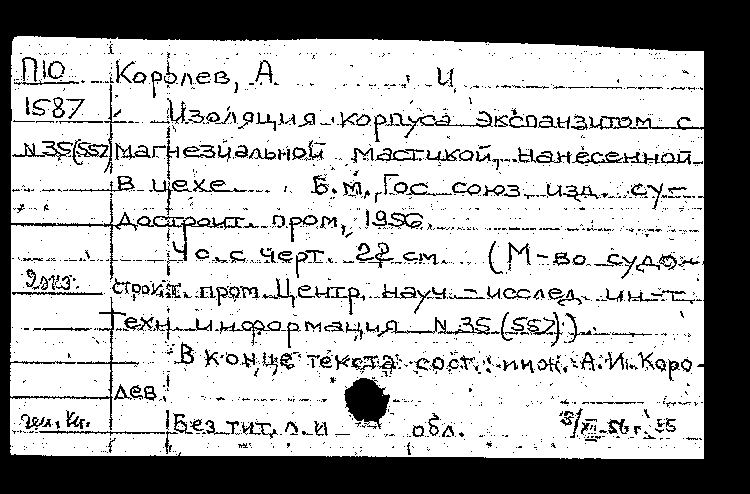 П10 Королев, А И
1587 Изоляция корпуса экспанзитом с
N 35(557) магнезиальной мастикой, нанесенной
в цехе. Б.м., Гос союз. изд. су-
достроит. пром, 1956.
4с. с черт. 22 см. (М-во судо-
2 экз. строит. пром. Центр. науч-исслед. ин-т
Техн. информация N 35 (557)).
В конце текста сост.: инж. А. И. Коро-
лев.
Без тит. л. и обл. 3/XII-56 г.